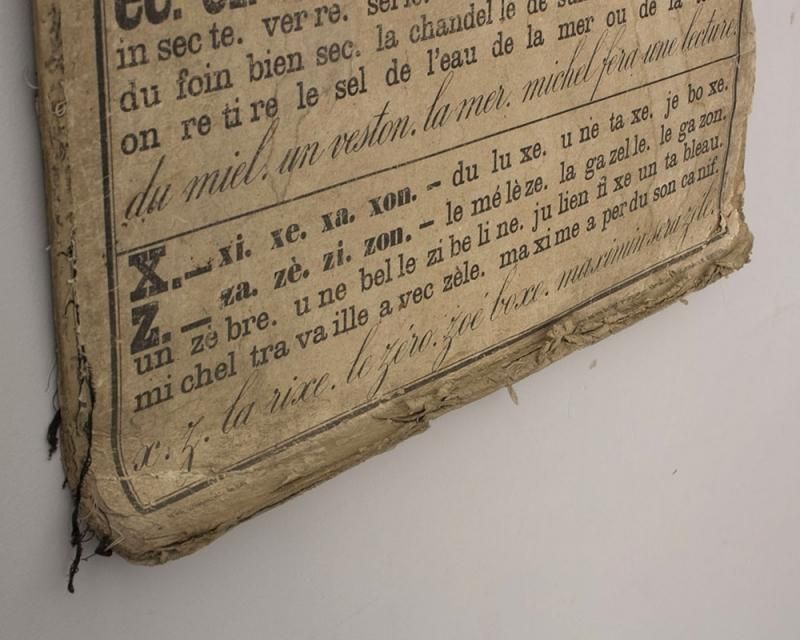 in sec te. ver re.
du foin bien sec. la chandel le de
on re ti re le sel de l'eau de la mer ou de la
du miel. un veston. la mer. michel fera une lecture.
X.— xi. xe. xa. xon. – du lu xe. u ne ta xe. je bo xe.
Z.— za. zè. zi. zon. – le mé lè ze. la ga zel le. le ga zon.
un zè bre. u ne bel le zi be li ne. ju lien fi xe un ta bleau.
mi chel tra va ille a vec zèle. ma xi me a per du son ca nif.
x. z. la rixe. le zéro. zoé boxe. maximin sera zélé.